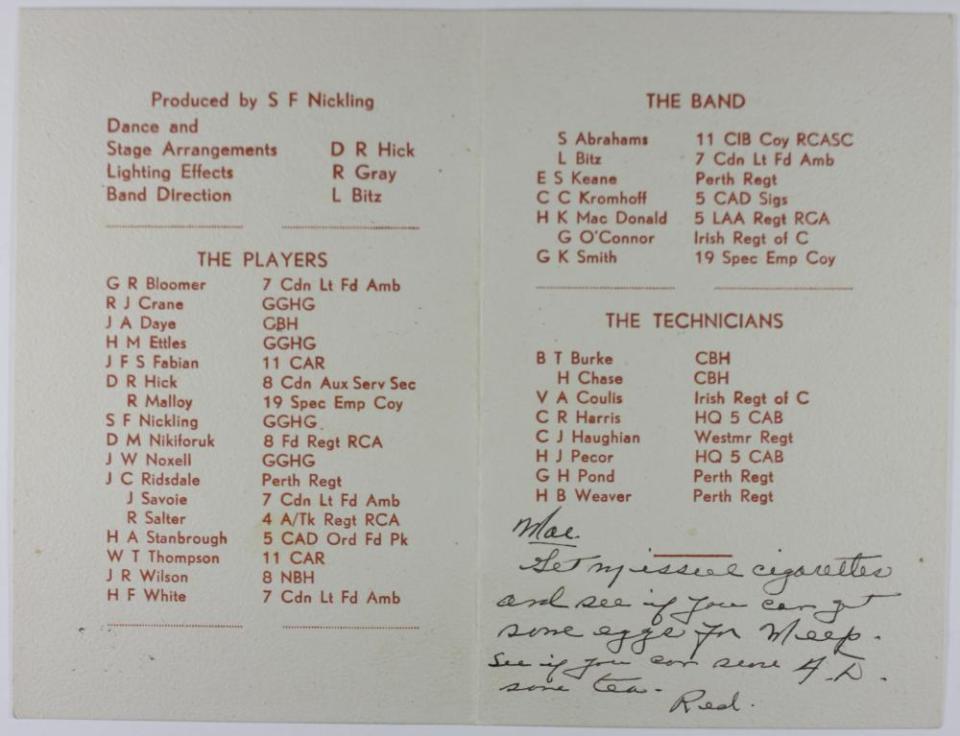 Produced by S F Nickling
Dance and
Stage Arrangements D R Hick
Lighting Effects R Gray
Band Direction L Bitz
THE PLAYERS
G R Bloomer 7 Cdn Lt Fd Amb
R J Crane GGHG
J A Daye CBH
H M Ettles GGHG
J F S Fabian 11 CAR
D R Hick 8 Cdn Aux Serv Sec
R Malloy 19 Spec Emp Coy
S F Nickling GGHG
D M Nikiforuk 8 Fd Regt RCA
J W Noxell GGHG
J C Ridsdale Perth Regt
J Savoie 7 Cdn Lt Fd Amb
R Salter 4 A/Tk Regt RCA
H A Stanbrough 5 CAD Ord Fd Pk
W T Thompson 11 CAR
J R Wilson 8 NBH
H F White 7 Cdn Lt Fd Amb
THE BAND
S Abrahams 11 CIB Coy RCASC
L Bitz 7 Cdn Lt Fd Amb
E S Keane Perth Regt
C C Kromhoff 5 CAD Sigs
H K Mac Donald 5 LAA Regt RCA
G O'Connor Irish Regt of C
G K Smith 19 Spec Emp Coy
THE TECHNICIANS
B T Burke CBH
H Chase CBH
V A Coulis Irish Regt of C
C R Harris HQ 5 CAB
C J Haughian Westmr Regt
H J Pecor HQ 5 CAB
G H Pond Perth Regt
H B Weaver Perth Regt
Get my issue cigarettes
and see if you can get
some eggs for
See if you can
some tea.
Red.